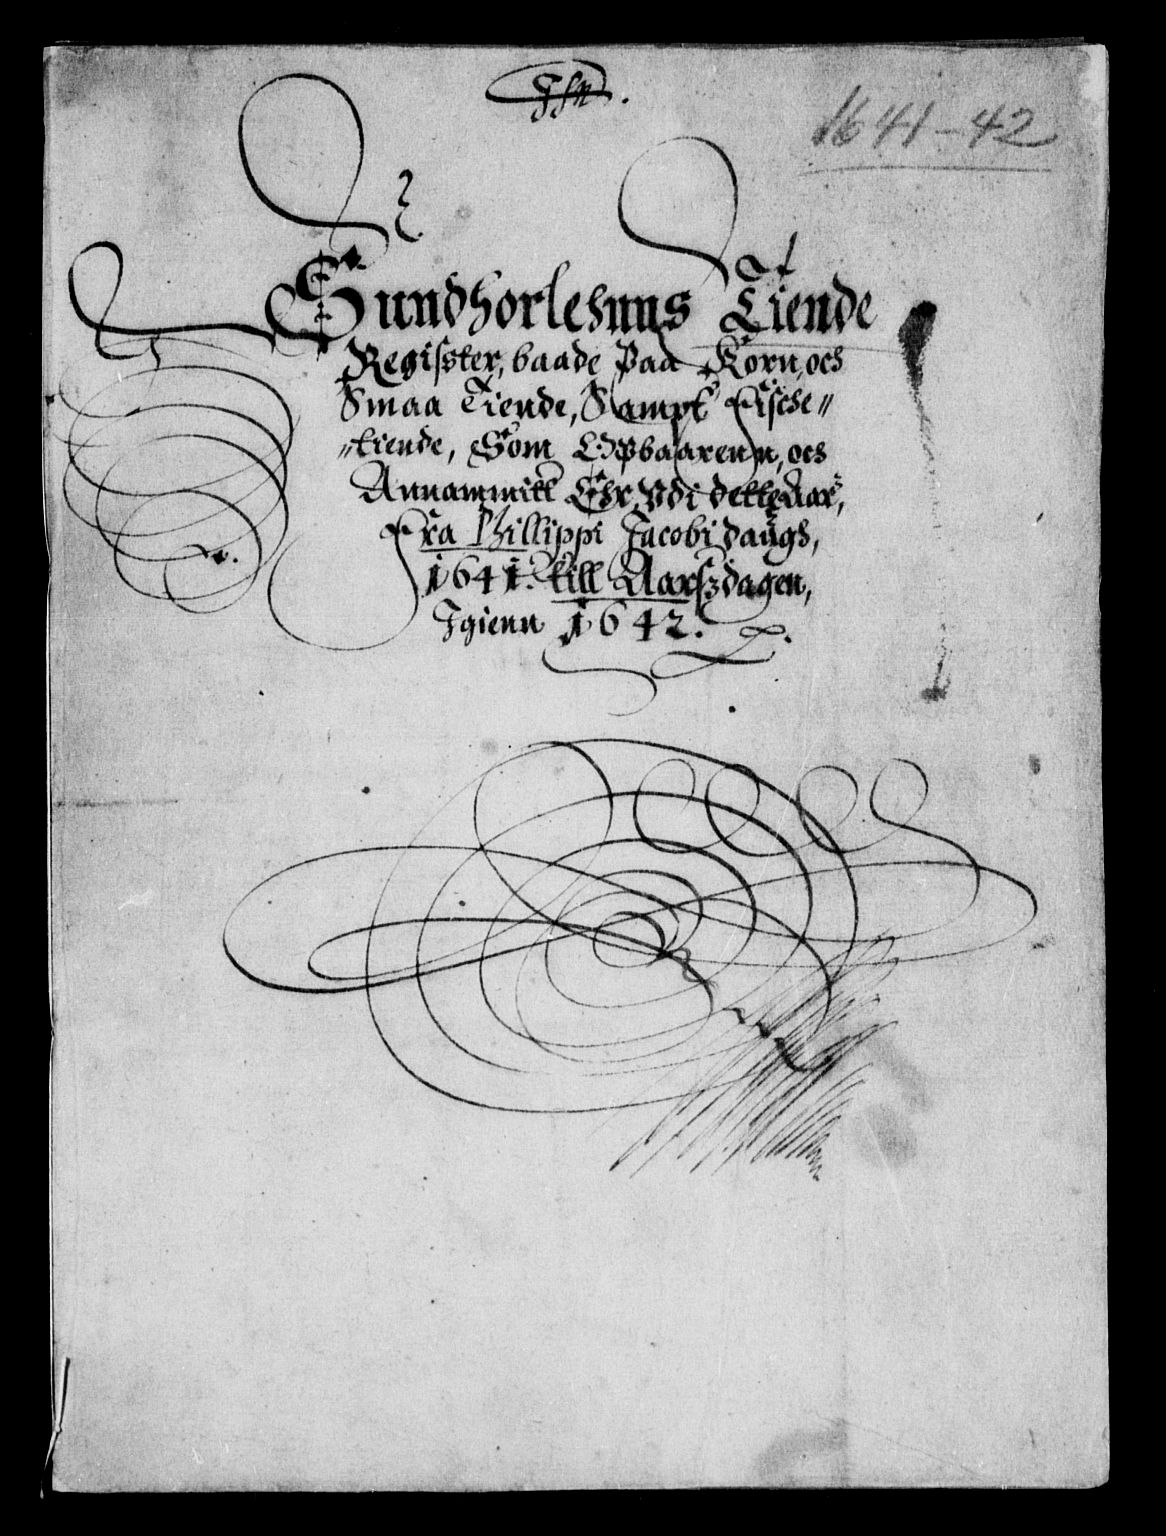 1641-42
Sundhorlehnns Tiende
Regisster, baade Paa Korn, och
Smaa Tiende, Sampt Fische=
=tiende, Som Opbaarenn, och
Annammitt Ehr Vdi dette Aar,
Fra Phillippi Jacobi daugs,
1641. till Aarszdagen,
Igienn 1642.